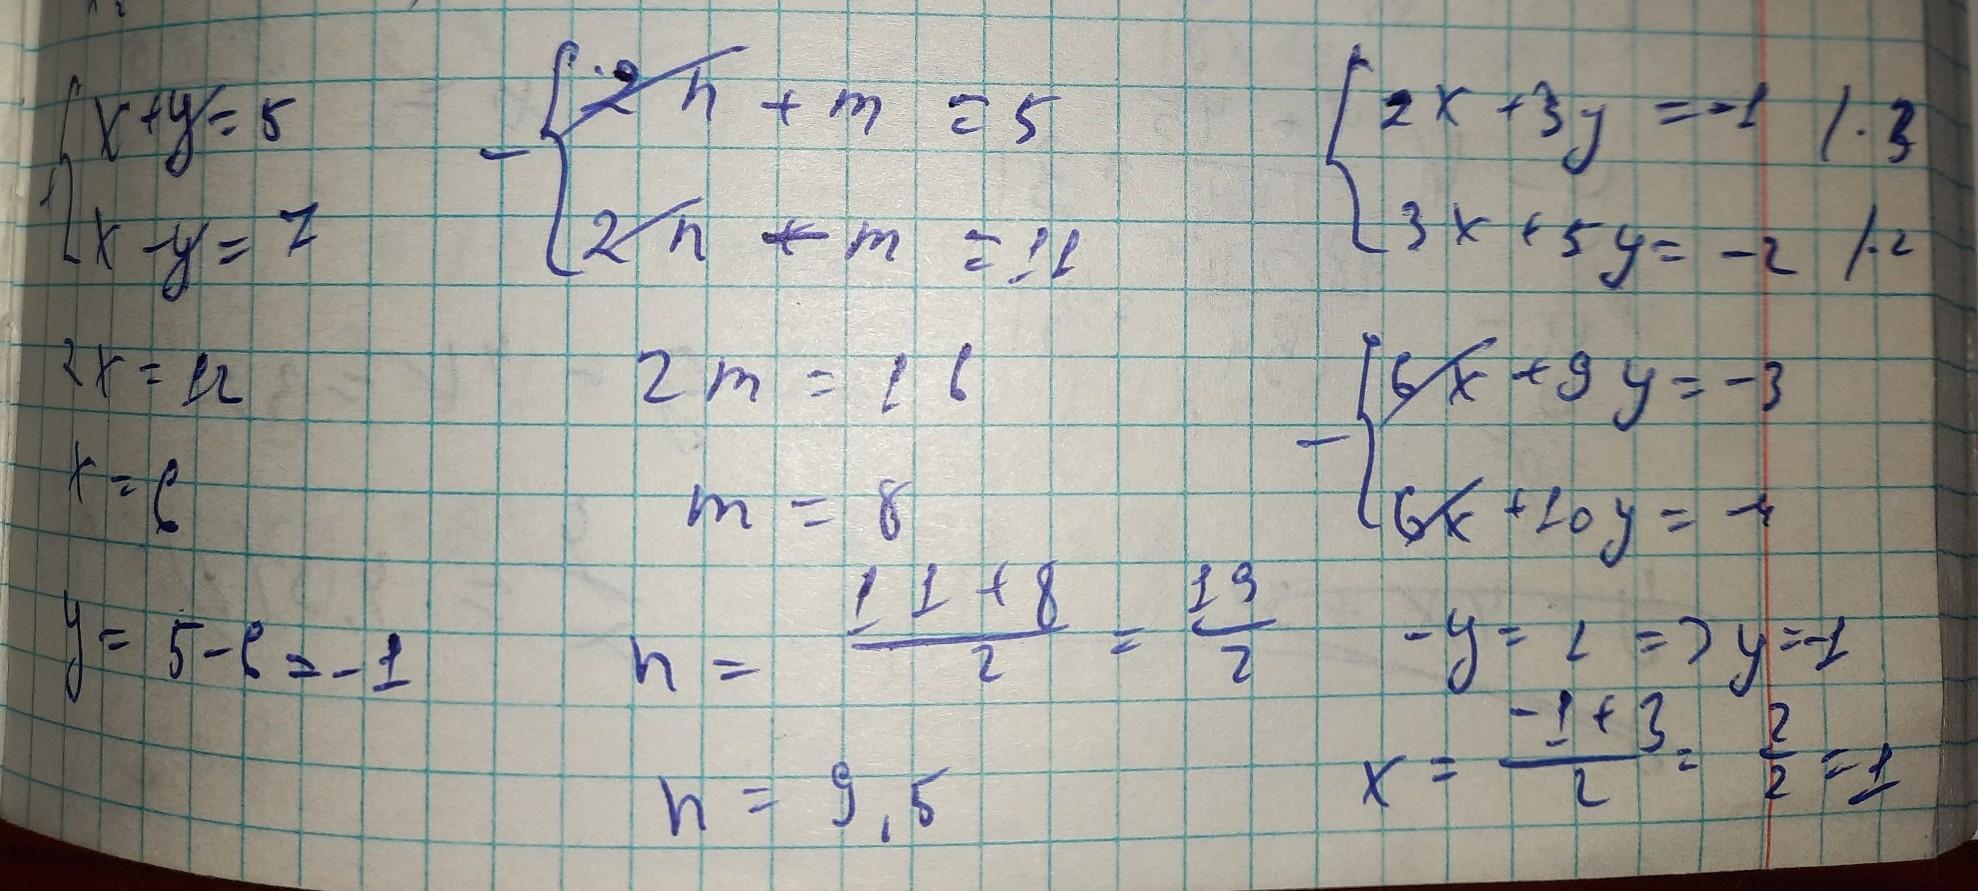 x+y=5
x-y=7
2x=12
x=6
y=5-6=-1
2n+m=5
2n-m=11
2m=16
m=8
n=\frac{11+8}{2}=\frac{19}{2}
n=9,5
2x+3y=-1 /·3
3x+5y=-2 /·2
6x+9y=-3
6x+10y=-4
-y=1=>y=-1
x=\frac{-1+3}{2}=\frac{2}{2}=1